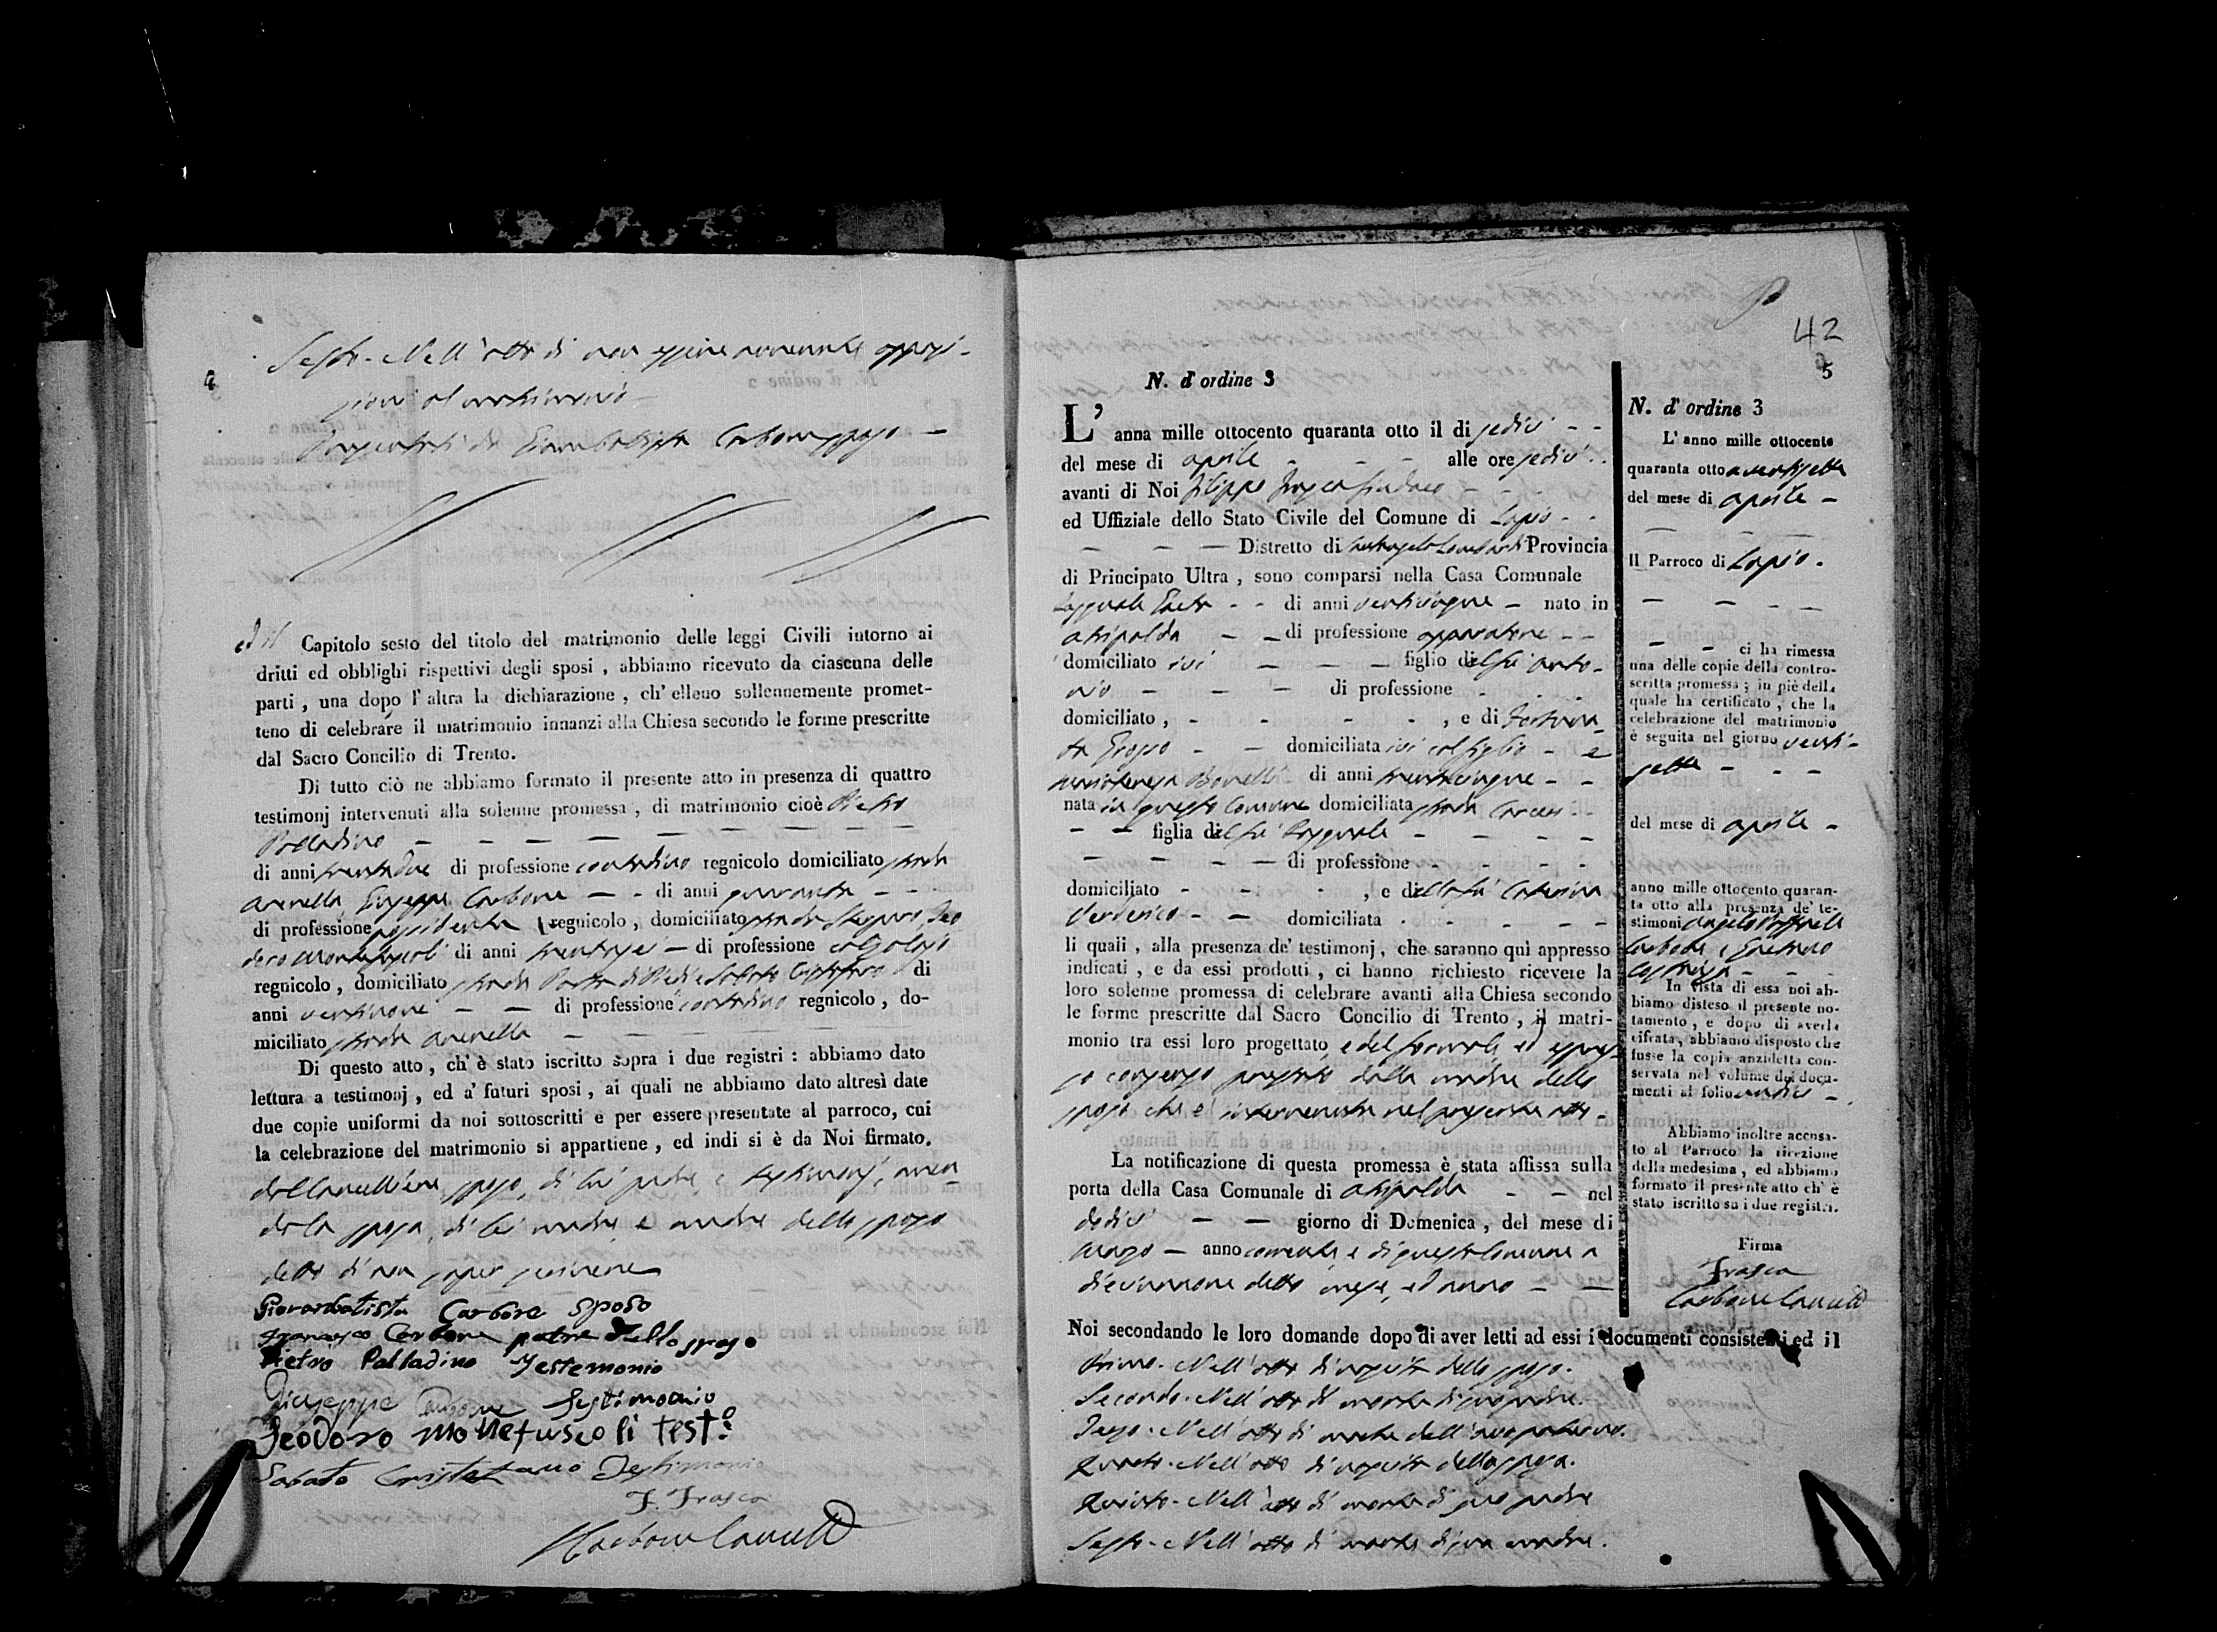 Sesto - Nell'atto di non essere avvenute opposi-
zioni al matrimonio -
Giambattista Carbone sposo -
ed il Capitolo sesto del titolo del matrimonio delle leggi Civili intorno ai
dritti ed obblighi rispettivi degli sposi, abbiamo ricevuto da ciascuna delle
parti, una dopo l'altra la dichiarazione, ch'elleno sollennemente promet-
teno di celebrare il matrimonio innanzi alla Chiesa secondo le forme prescritte
dal Sacro Concilio di Trento.
Di tutto ciò ne abbiamo formato il presente atto in presenza di quattro
testimonj intervenuti alla solenne promessa, di matrimonio cioè Pietro
Palladino
di anni trentadue di professione contadino regnicolo domiciliato strada
Arenella, Giuseppe Carbone - - di anni quaranta - -
di professione possidente regnicolo, domiciliato strada Teo
doro Montefuscoli di anni trentasei - di professione
regnicolo, domiciliato strada Porta di Piedi e Sabato di
anni ventinove - - di professione contadino regnicolo, do-
miciliato strada Arenella -
Di questo atto, ch'è stato iscritto sopra i due registri: abbiamo dato
lettura a testimonj, ed a' futuri sposi, ai quali ne abbiamo dato altresì date
due copie uniformi da noi sottoscritti e per essere presentate al parroco, cui
la celebrazione del matrimonio si appartiene, ed indi si è da Noi firmato.
dal Cancelliere, sposo, di lui padre e testimonj, aven-
do la sposa, di lei madre, e madre dello sposo
detto di non saper scrivere
Giovanbatista Carbone sposo
Francesco Carbone padre dello sposo
Pietro Palladino Testemonio
Giuseppe Carbone Testimonio
Teodoro Montefuscoli test.o
Sabato Testimonio
F. Frasca
Carbone Cancell
42
5
N. d'ordine 3
L'anna mille ottocento quaranta otto il di sedici - -
del mese di aprile - - - alle ore sedici - -
avanti di Noi Filippo Frasca Sindaco - - -
ed Uffiziale dello Stato Civile del Comune di Lapio - -
- - - Distretto di Santangelo Lombardi Provincia
di Principato Ultra, sono comparsi nella Casa Comunale
Pasquale Gaeta - - di anni venticinque - nato in
Atripalda - - di professione - -
domiciliato ivi - - - figlio del fu Anto-
nio - - - di professione - - -
domiciliato, - - - -, e di Fortuna-
ta - - domiciliata ivi col figlio - e
Mariateresa Bonelli di anni trentacinque - -
nata in questo Comune domiciliata strada Carceri - -
- - figlia del fu Pasquale - - - -
- - - - di professione - - - -
domiciliato - - -, e della fu Caterina
Verderico - - domiciliata - - - - -
li quali, alla presenza de' testimonj, che saranno quì appresso
indicati, e da essi prodotti, ci hanno richiesto ricevere la
loro solenne promessa di celebrare avanti alla Chiesa secondo
le forme prescritte dal Sacro Concilio di Trento, il matri-
monio tra essi loro progettato, e del formole, ed espres-
so consenso prestato dalla madre dello
sposo che è intervenuta nel presente atto -
La notificazione di questa promessa è stata affissa sulla
porta della Casa Comunale di Atripalda - - nel
dodici - - giorno di Domenica, del mese di
Marzo - anno corrente, e di questo Comune a
diecinnove detto mese, ed anno - -
Noi secondando le loro domande dopo di aver letti ad essi i documenti consistenti ed il
Primo - Nell'atto di nascita dello sposo.
Secondo - Nell'atto di morte di suo padre.
Terzo - Nell'atto di morte dell'avo paterno.
Quarto - Nell'atto di nascita della sposa.
Quinto - Nell'atto di morte di suo padre
Sesto - Nell'atto di morte di sua madre.
N. d'ordine 3
L'anno mille ottocento
quaranta otto a ventisette
del mese di aprile -
Il Parroco di Lapio.
ci ha rimessa
una delle copie della contro-
scritta promessa; in piè della
quale ha certificato, che la
celebrazione del matrimonio
è seguita nel giorno venti-
sette - - -
del mese di aprile -
anno mille ottocento quaran-
ta otto alla presenza de' te-
stimoni Angelo Raffaele
Carbone, e Gaetano
In vista di essa noi ab-
biamo disteso il presente no-
tamento, e dopo di averla
cifrata, abbiamo disposto che
fusse la copia anzidetta con-
servata nel volume dei docu-
menti al folio undici -
Abbiamo inoltre accusa-
to al Parroco la ricezione
della medesima, ed abbiamo
formato il presente atto ch'è
stato iscritto su i due registri.
Firma
Frasca
Carbone Cancell